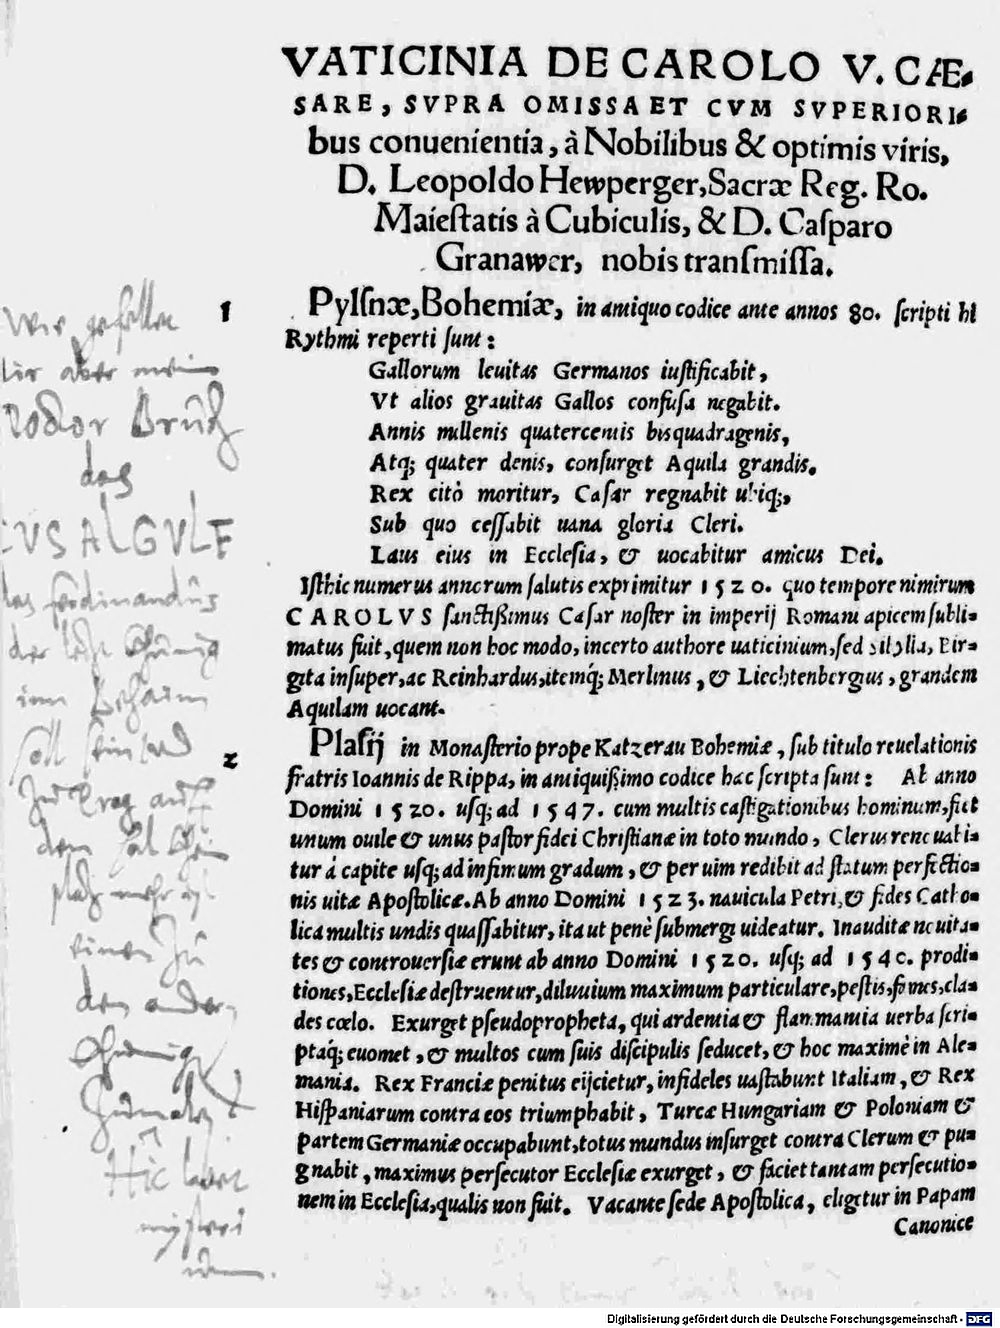 VATICINIA DE CAROLO V. CÆ-
SARE, SVPRA OMISSA ET CVM SVPERIORI-
bus conuenientia, à Nobilibus & optimis viris,
D. Leopoldo Hewperger, Sacræ Reg. Ro.
Maieſtatis à Cubiculis, & D. Caſparo
Granawer, nobis tranſmiſſa.
1 Pylſnæ, Bohemiæ, in antiquo codice ante annos 80. ſcripti hi
Rythmi reperti ſunt:
Gallorum leuitas Germanos iuſtificabit,
Vt alios grauitas Gallos confuſa negabit.
Annis millenis quatercentis bisquadragenis,
Atq; quater denis, conſurget Aquila grandis.
Rex citò moritur, Cæſar regnabit ubiq;,
Sub quo ceſſabit uana gloria Cleri.
Laus eius in Eccleſia, & uocabitur amicus Dei.
Iſthic numerus annorum ſalutis exprimitur 1520. quo tempore nimirum
CAROLVS ſanctißimus Cæſar noſter in imperij Romani apicem ſubli-
matus fuit, quem non hoc modo, incerto authore uaticinium, ſed Sibylla, Bir-
gita inſuper, ac Reinhardus, itemq́; Merlinus, & Liechtenbergius, grandem
Aquilam uocant.
2 Plaſij in Monaſterio prope Katzerau Bohemiæ, ſub titulo reuelationis
fratris Ioannis de Rippa, in antiquißimo codice hæc ſcripta ſunt: Ab anno
Domini 1520. uſq; ad 1547. cum multis caſtigationibus hominum, fiet
unum ouile & unus paſtor fidei Chriſtianæ in toto mundo, Clerus renouabi-
tur á capite uſq; ad infimum gradum, & per uim redibit ad ſtatum perfectio-
nis uitæ Apoſtolicæ. Ab anno Domini 1523. nauicula Petri, & fides Catho-
lica multis undis quaſſabitur, ita ut penè ſubmergi uideatur. Inauditæ nouita-
tes & controuerſiæ erunt ab anno Domini 1520. uſq; ad 1540. prodi-
tiones, Eccleſiæ deſtruentur, diluuium maximum particulare, peſtis, fames, cla-
des cœlo. Exurget pſeudopropheta, qui ardentia & flammantia uerba ſcri-
ptáq; euomet, & multos cum ſuis diſcipulis ſeducet, & hoc maximè in Ale-
mania. Rex Franciæ penitus eijcietur, infideles uaſtabunt Italiam, & Rex
Hiſpaniarum contra eos triumphabit, Turcæ Hungariam & Poloniam &
partem Germaniæ occupabunt, totus mundus inſurget contra Clerum & pu-
gnabit, maximus perſecutor Eccleſiæ exurget, & faciet tantam perſecutio-
nem in Eccleſia, qualis non fuit. Vacante ſede Apoſtolica, eligetur in Papam
Canonice
das
ALGVLF
Hic
Digitalisierung gefördert durch die Deutsche Forschungsgemeinschaft - DFG